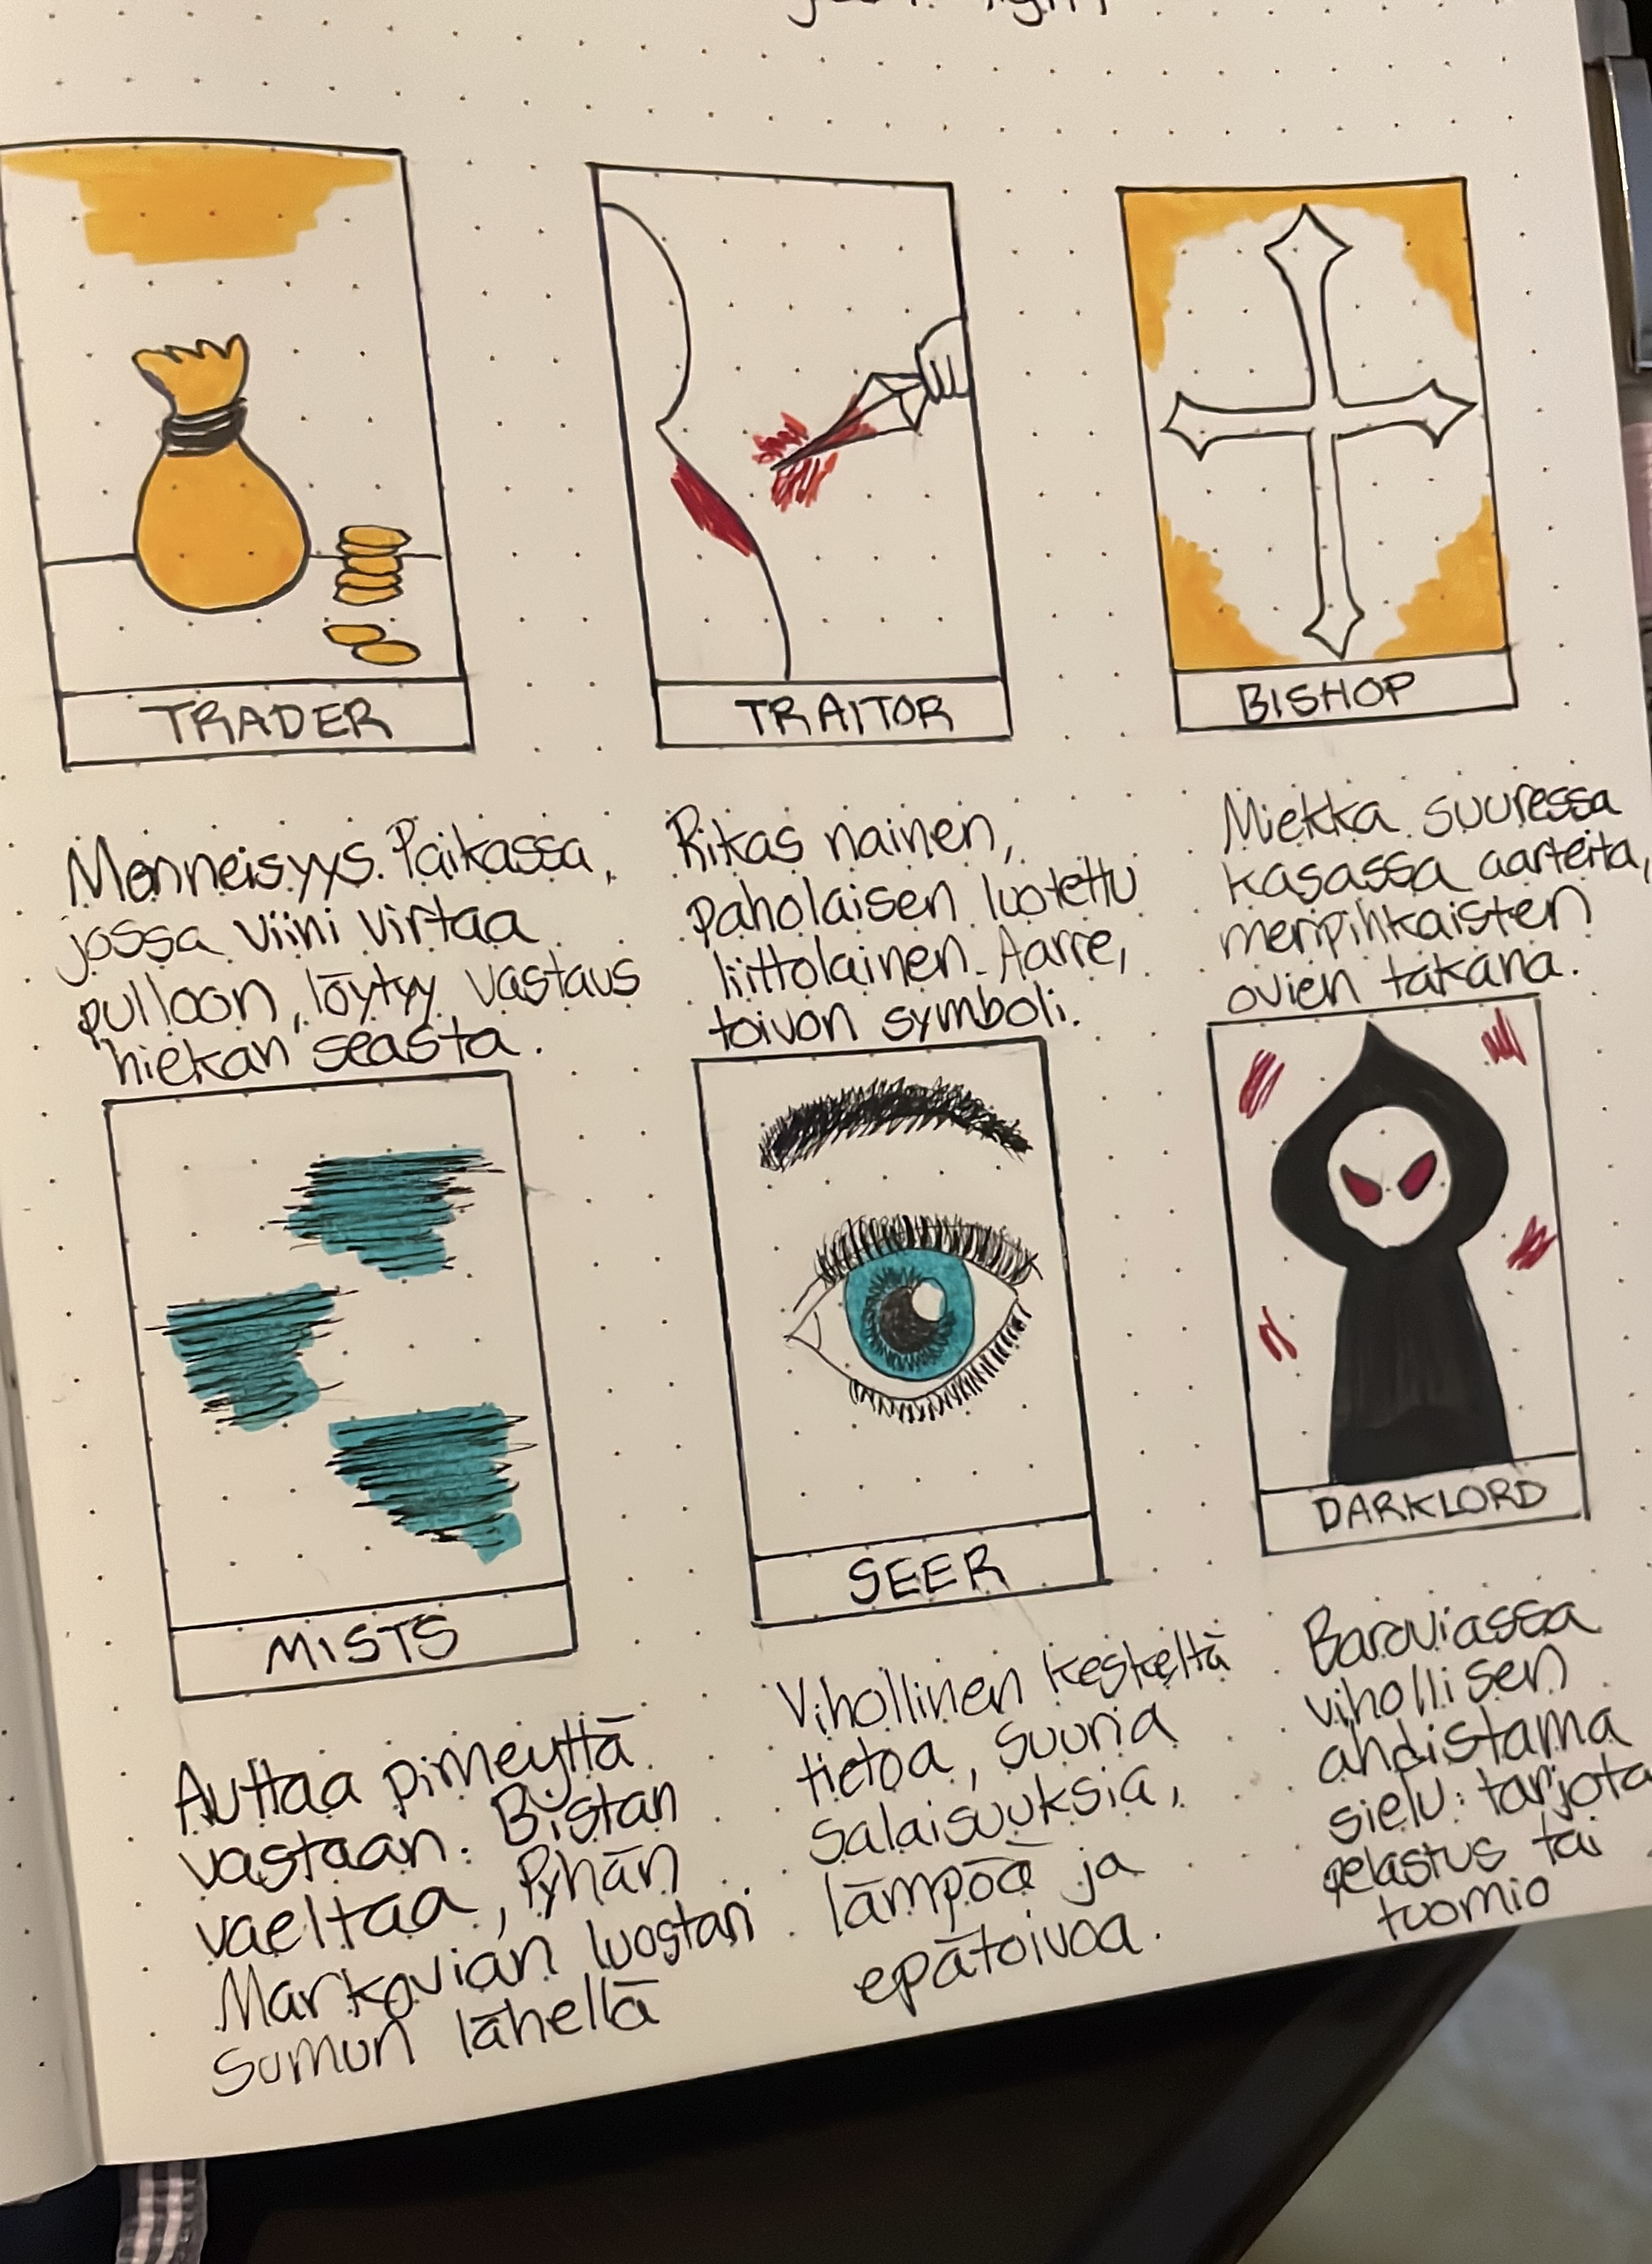 TRADER
TRAITOR
BISHOP
Menneisyys. Paikassa,
jossa viini virtaa
pulloon, löytyy vastaus
hiekan seasta.
Rikas nainen,
paholaisen luotettu
liittolainen. Aarre,
toivon symboli.
Miekka suuressa
kasassa aarteita,
meripihkaisten
ovien takana.
MISTS
SEER
DARKLORD
Auttaa pimeyttä
vastaan. Bistan
vaeltaa, Pyhän
Markovian luostari
sumun lähellä
Vihollinen keskeltä
tietoa, suuria
salaisuuksia,
lämpöä ja
epätoivoa.
Baroviassa
vihollisen
ahdistama
sielu: tarjota
pelastus tai
tuomio